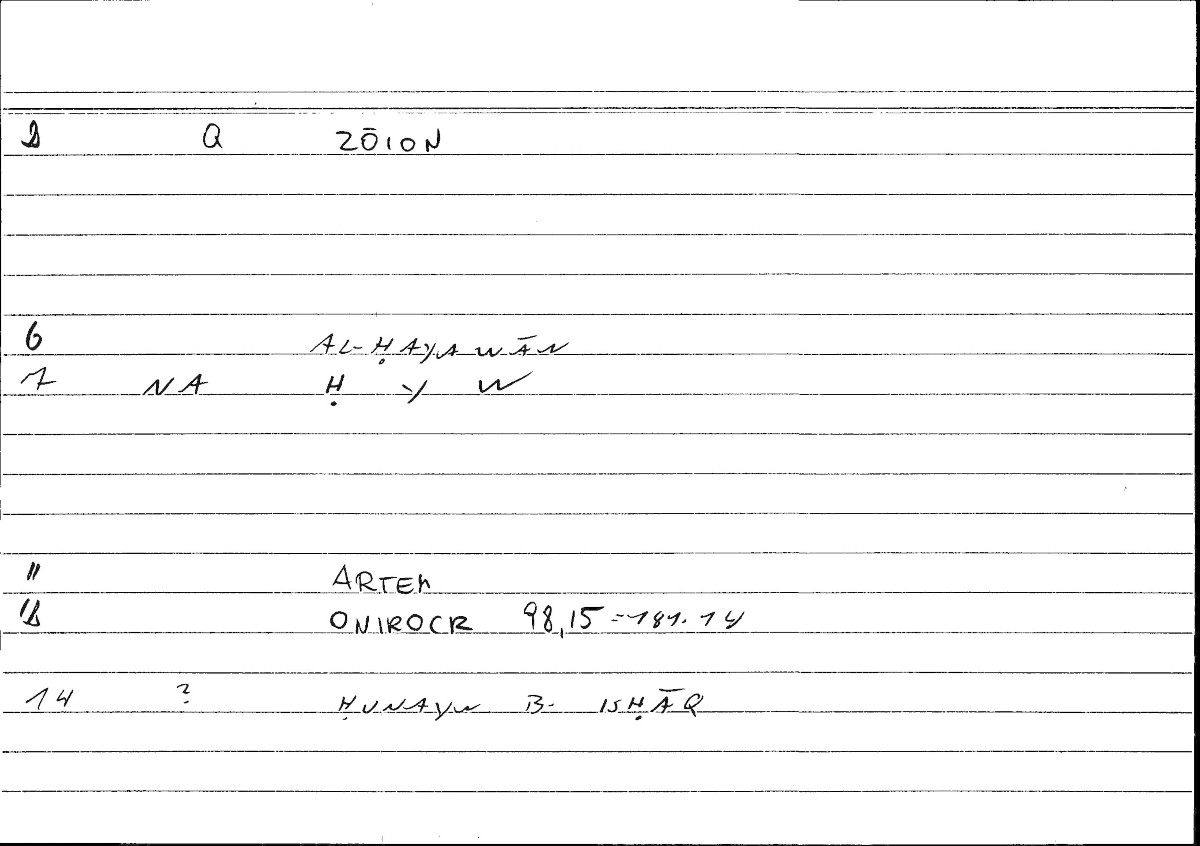 2 Q ZŌION
6 AL-ḤAYAWĀN
7 NA Ḥ Y W
11 ARTEM
12 ONIROCR 98,15 = 181.14
14 ? ḤUNAYN B. ISḤĀQ